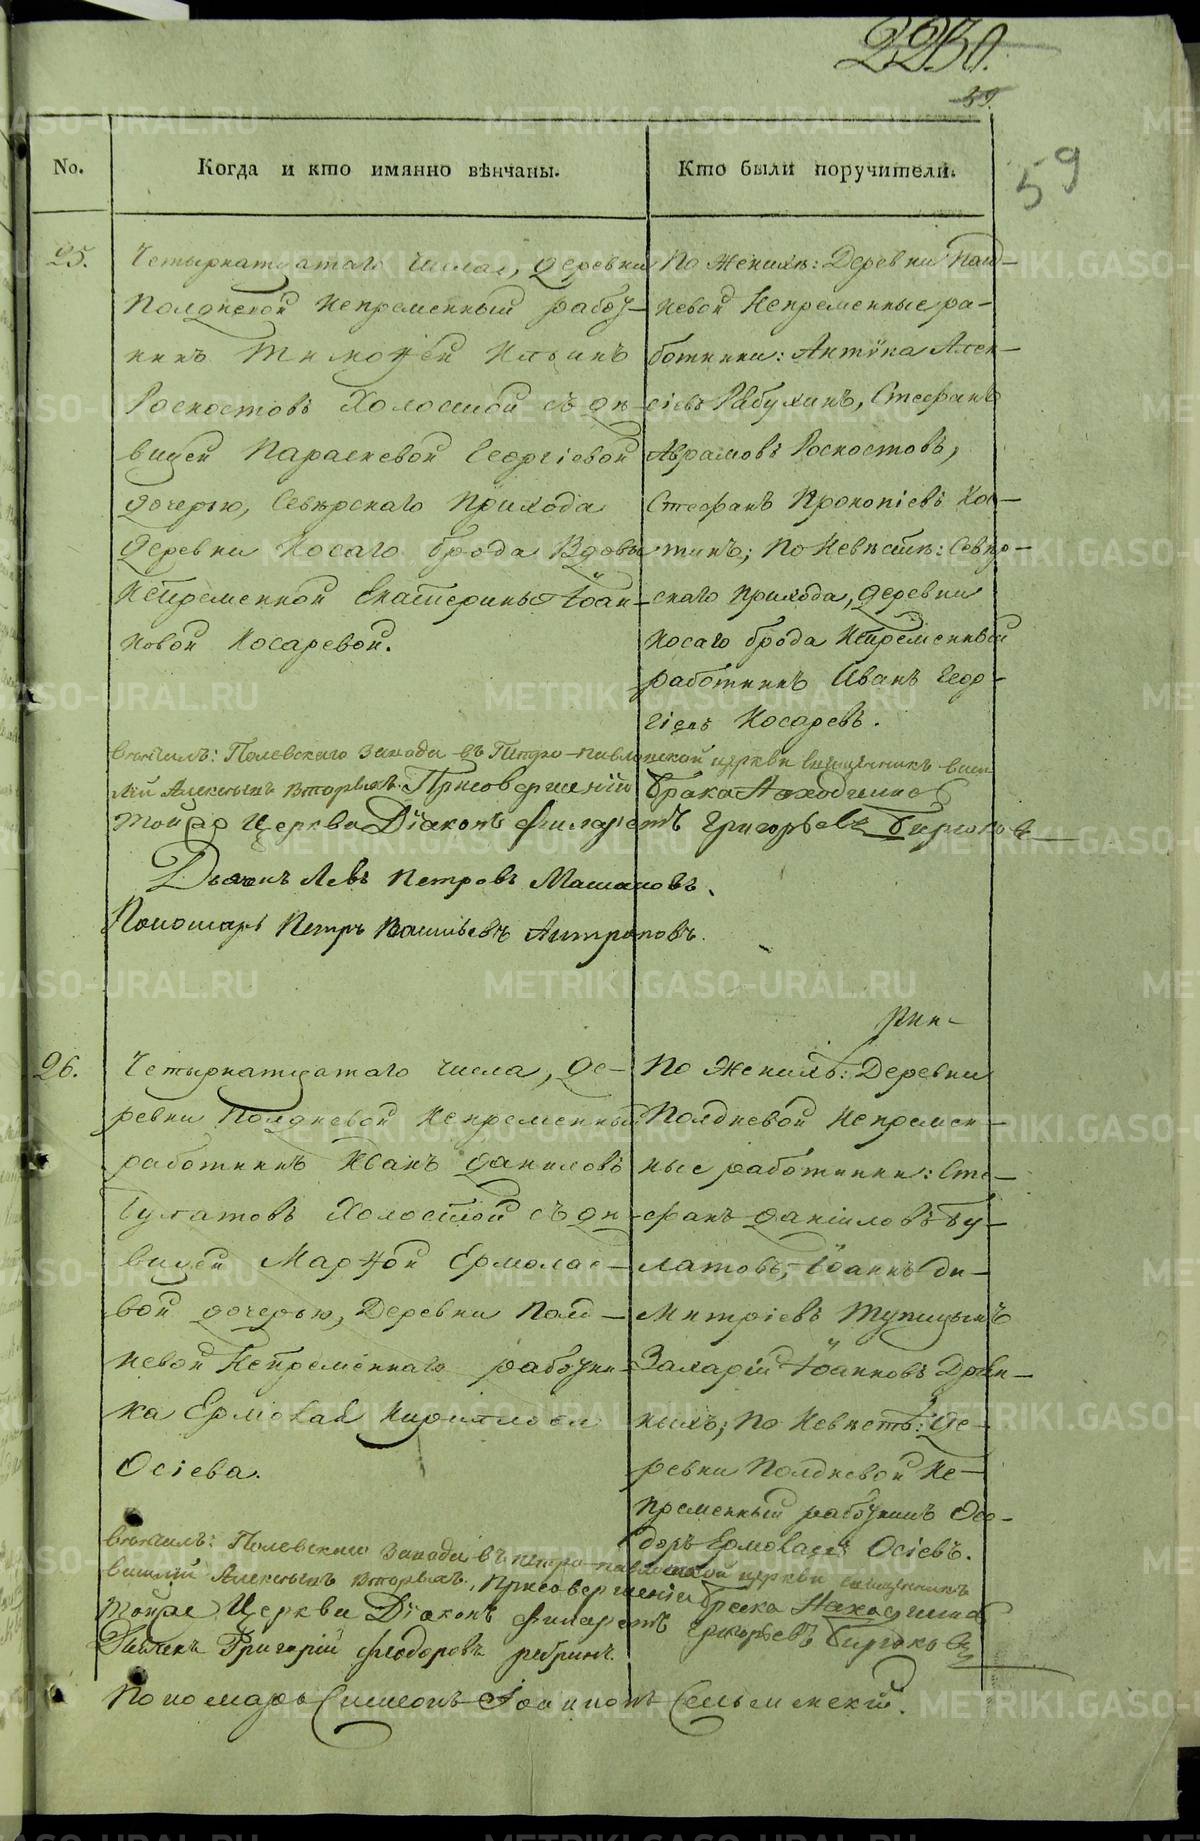 2230.
59.
59
No.
Когда и кто имянно вѣнчаны.
Кто были поручители.
25.
Четырнатцатаго числа, деревни
Полдневой Непременный работ-
никъ Тимоѳей Ильинъ
Роскостовъ Холостой съ дѣ-
вицей Параскевой Георгіевой
дочерью, Сѣверскаго прихода
деревни Косаго брода Вдовы
Непременной Екатерины Іоан-
новой Косаревой.
По Женихѣ: Деревни Полд-
невой Непременные ра-
ботники: Антипа Алек-
сіевъ Рабухинъ, Стефанъ
Аврамовъ Роскостовъ,
Стефанъ Прокопіевъ Ко-
тинъ; По Невѣстѣ: Сѣвер-
скаго прихода, деревни
Косаго брода Непременный
работникъ Иванъ Геор-
гіевъ Косаревъ.
Вѣнчалъ: Полевскаго завода Петро-павловской церкви священникъ Васи-
лій Алексѣевъ Вторыхъ. При совершеніи брака находился
той же Церкви Діаконъ Филаретъ Григорьевъ Бирюковъ
Дьячекъ Левъ Петровъ Машановъ.
Пономарь Петръ Васильевъ Антроповъ.
26.
Четырнатцатаго числа, де-
ревни Полдневой Непременный
работникъ Иванъ Даниловъ
Булатовъ Холостой съ дѣ-
вицей Марѳой Ермолае-
вой дочерью, Деревни Полд-
невой Непременнаго работни-
ка Ермолая Кирилова
Осіева.
По Женихѣ: Деревни
Полдневой Непремен-
ные работники: Сте-
фанъ Даніиловъ Бу-
латовъ, Іоаннъ Ди-
митріевъ Тупицынъ
Захарій Іоанновъ
ныхъ; По Невѣстѣ: Де-
ревни Полдневой Не-
пременный работникъ Ѳео-
доръ Ермолаевъ Осіевъ.
Вѣнчалъ: Полевскаго завода Петро-павловской церкви священникъ
Василій Алексѣевъ Вторыхъ. При совершеніи брака находился
той же Церкви Діаконъ Филаретъ Григорьевъ Бирюковъ
Дьячекъ Григорій Феодоровъ
Пономарь Симеонъ Іоанновъ Сельменскій.
METRIKI.GASO-URAL.RU